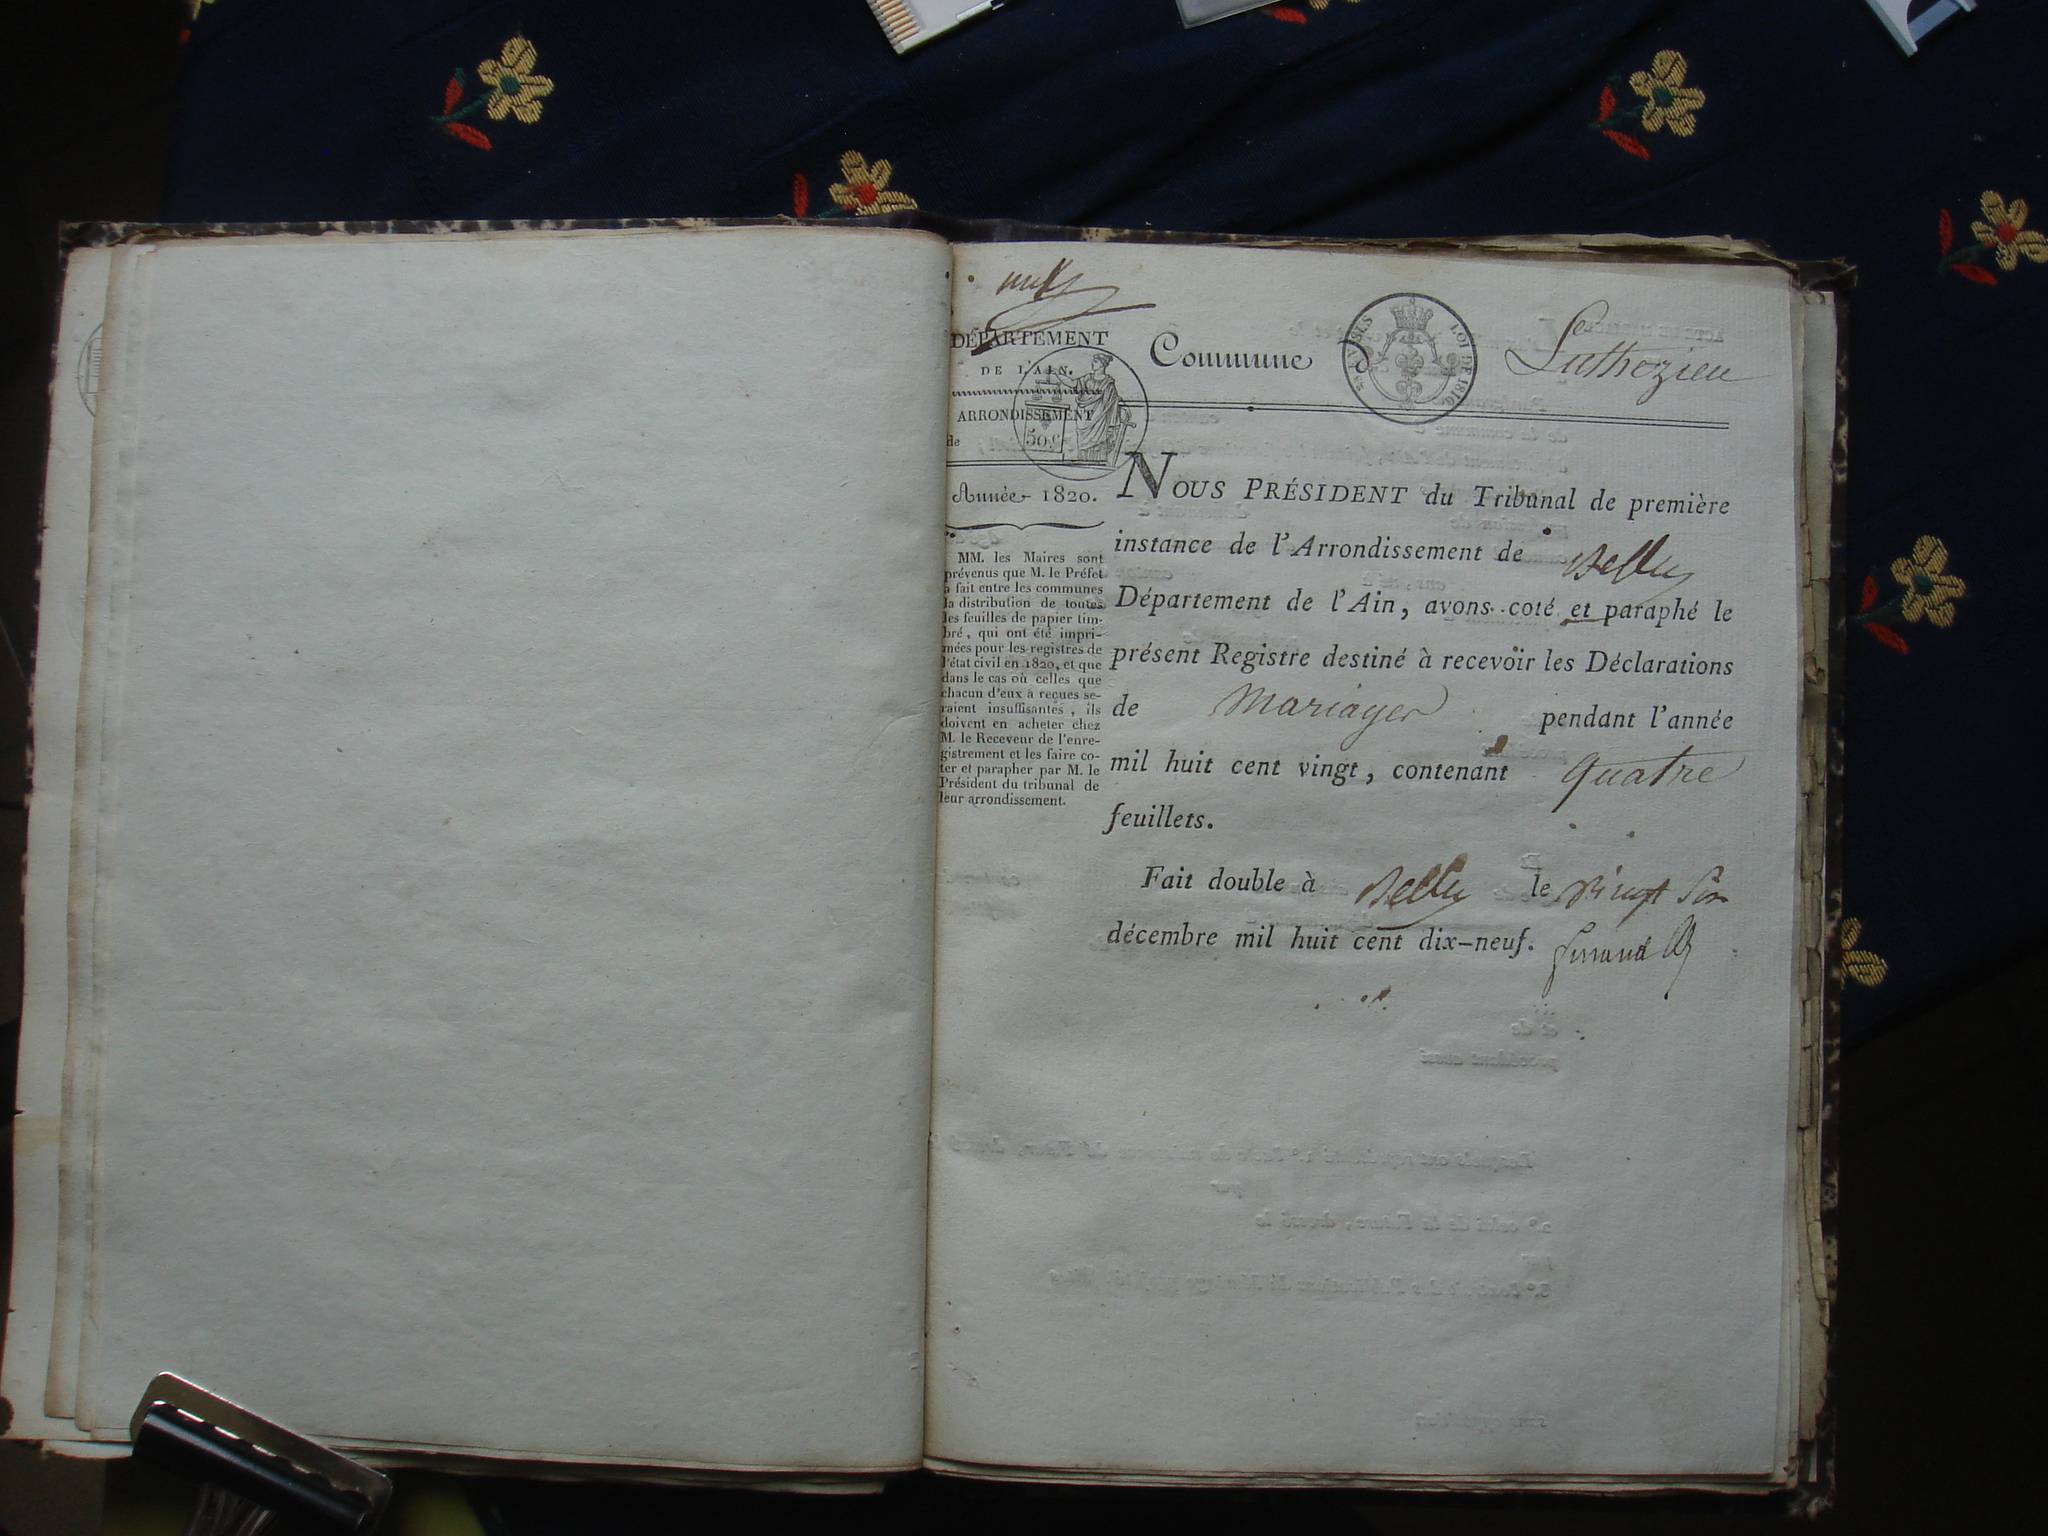 DÉPARTEMENT
DE L'AIN.
ARRONDISSEMENT
de
50 c
Année 1820.
MM. les Maires sont
prévenus que M. le Préfet
a fait entre les communes
la distribution de toutes
les feuilles de papier tim-
bré, qui ont été impri-
mées pour les registres de
l'état civil en 1820, et que
dans le cas où celles que
chacun d'eux a reçues se-
raient insuffisantes, ils
doivent en acheter chez
M. le Receveur de l'enre-
gistrement et les faire co-
ter et parapher par M. le
Président du tribunal de
leur arrondissement.
Commune d Luthezieu
LOI DE 1816
NOUS PRÉSIDENT du Tribunal de première
instance de l'Arrondissement de Belley
Département de l'Ain, avons coté et paraphé le
présent Registre destiné à recevoir les Déclarations
de Mariages pendant l'année
mil huit cent vingt, contenant quatre
feuillets.
Fait double à Belley le vingt six
décembre mil huit cent dix-neuf.